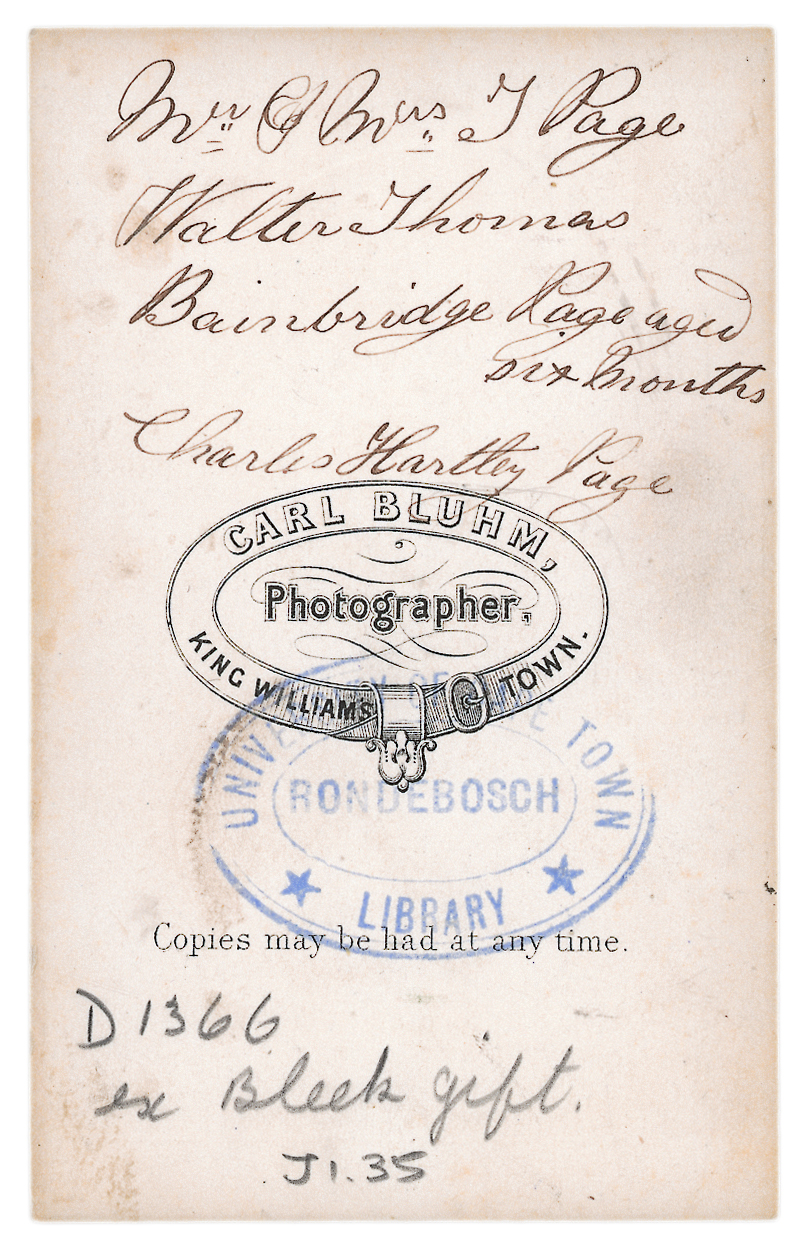 Mr & Mrs T Page
Walter Thomas
Bainbridge Page aged
six months
Charles Hartley Page
CARL BLUHM,
Photographer,
KING WILLIAMS TOWN.
UNIVERSITY OF CAPE TOWN
RONDEBOSCH
LIBRARY
Copies may be had at any time.
D 1366
ex Bleek gift.
J1.35